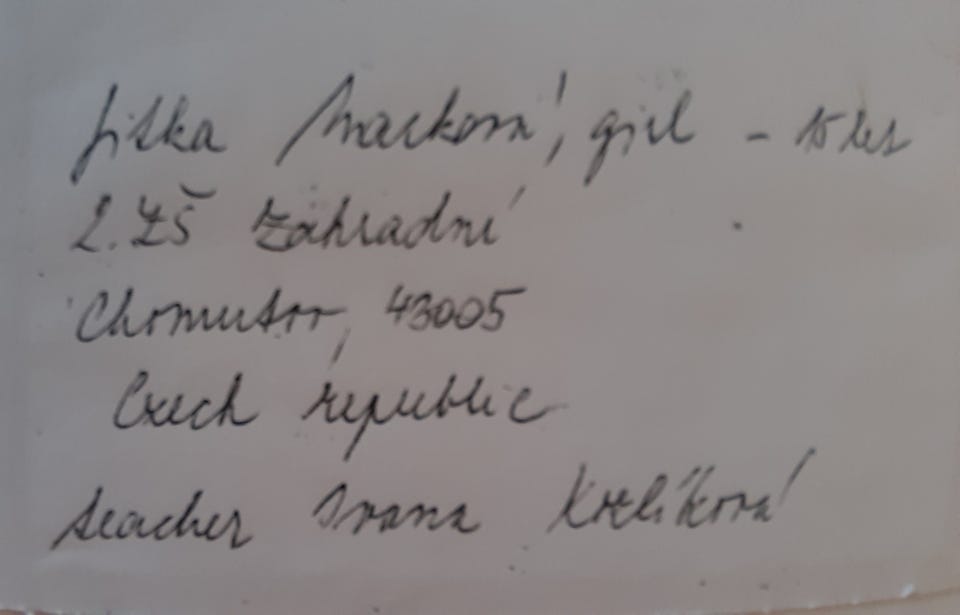 Jitka Macková, girl - 15 let
2. ZŠ Zahradní
Chomutov, 43005
Czech republic
teacher Ivana Kozlíková